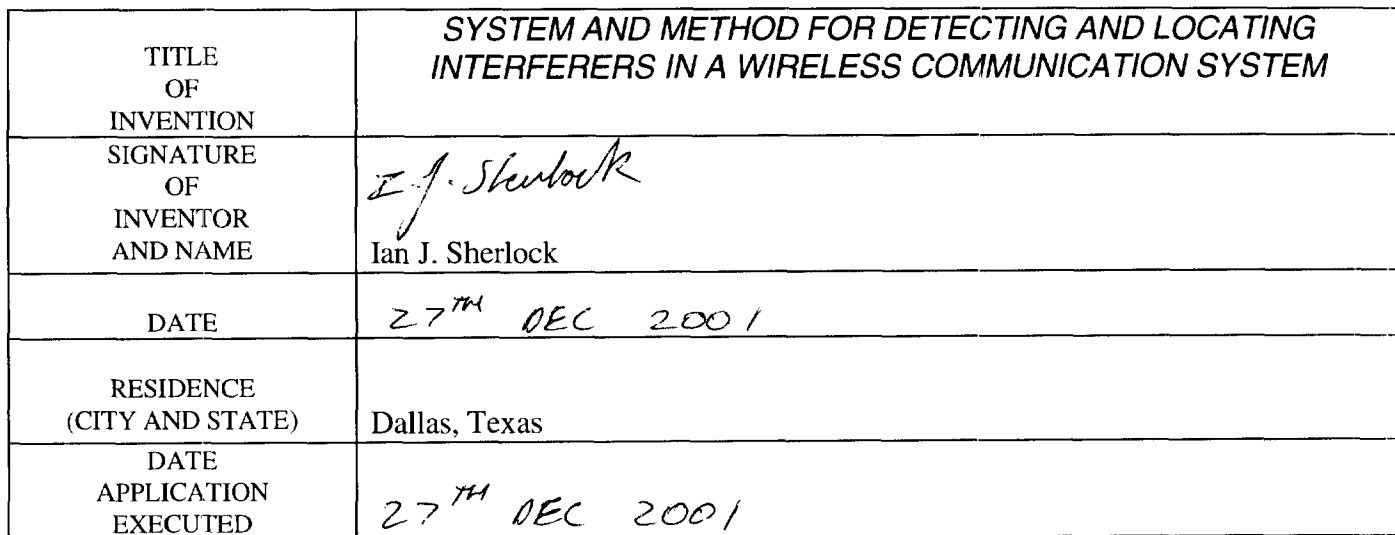 TITLE
OF
INVENTION
SYSTEM AND METHOD FOR DETECTING AND LOCATING
INTERFERERS IN A WIRELESS COMMUNICATION SYSTEM
SIGNATURE
OF
INVENTOR
AND NAME
I. J. Sherlock
Ian J. Sherlock
DATE
27TH DEC 2001
RESIDENCE
(CITY AND STATE)
Dallas, Texas
DATE
APPLICATION
EXECUTED
27TH DEC 2001